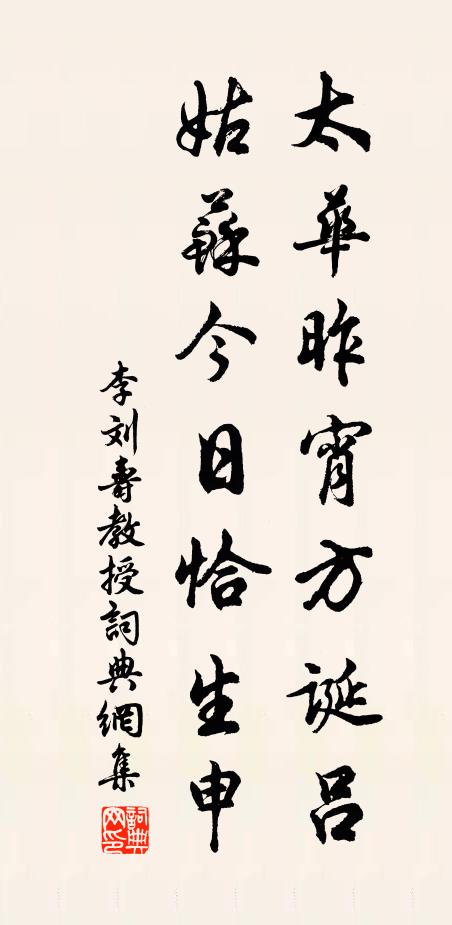 太華昨宵方誕呂
姑蘇今日恰生申
李刘壽教授詞典網集
詞典网印